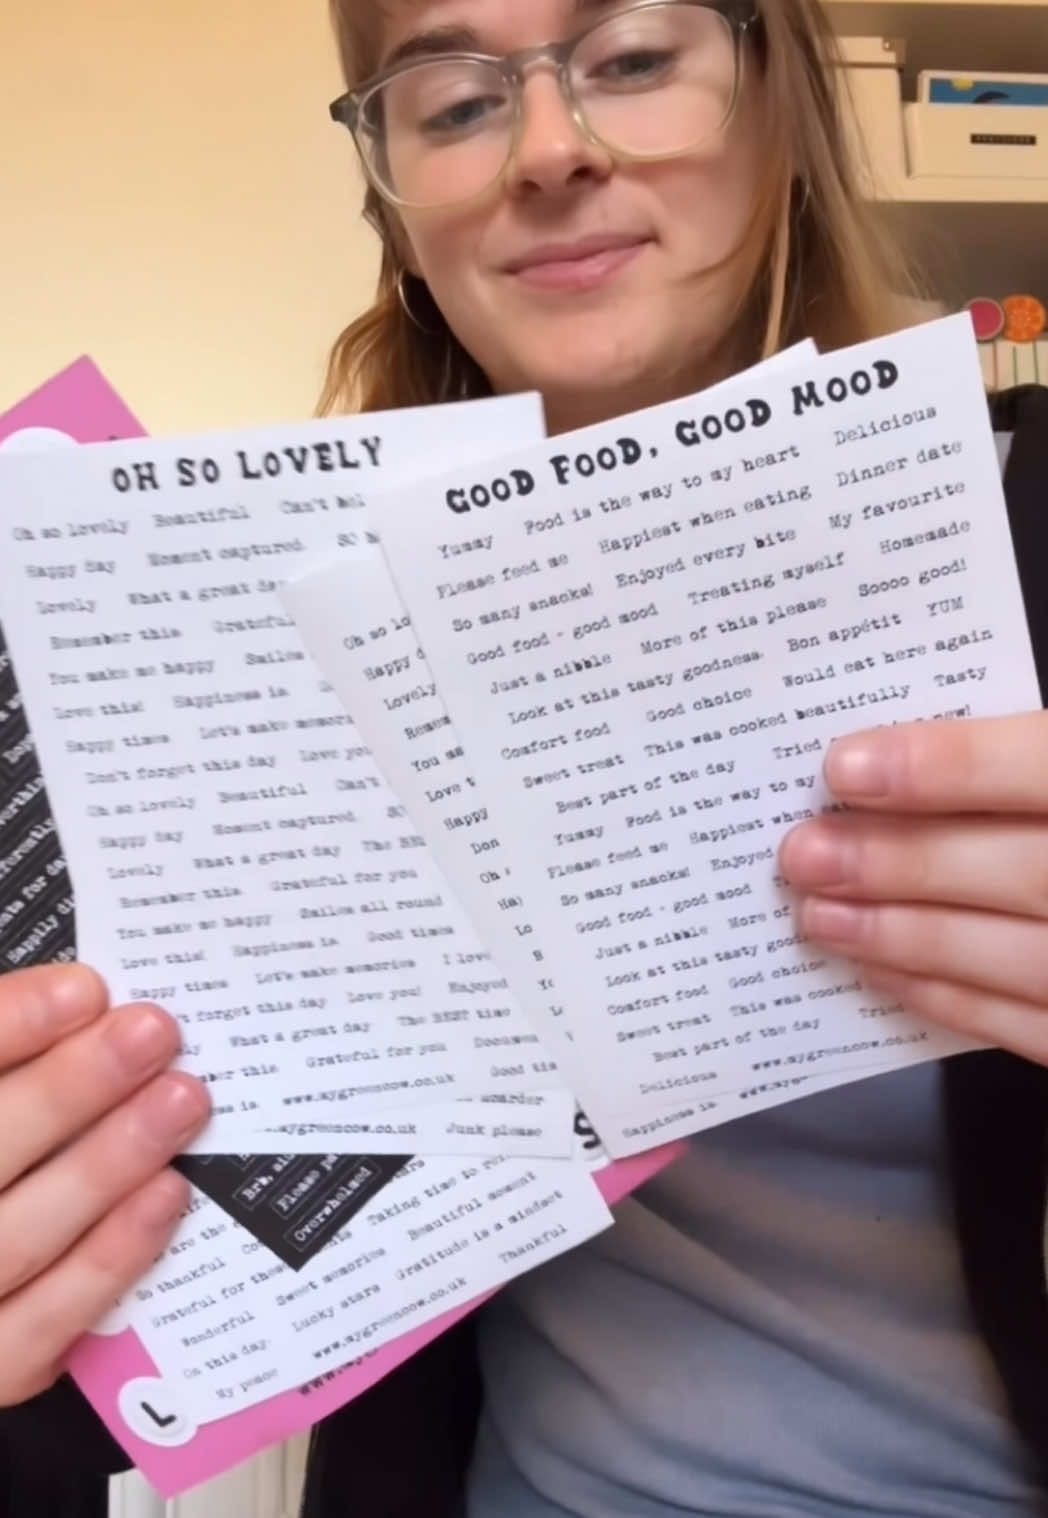 OH SO LOVELY
Oh so lovely Beautiful Can't
Happy day Moment captured. SO
Lovely What a great day
Remember this Grateful
You make me happy Smiles
Love this! Happiness is
Happy times Let's make
Don't forget this day Love you
Oh so lovely Beautiful Can't
Happy day Moment captured.
Lovely What a great day The
Remember this Grateful for you
You make me happy Smiles all round
Love this! Happiness is Good times
Happy times Let's make memories I love
forget this day Love you! Enjoyed
What a great day The BEST time
this Grateful for you
is www.mygreencow.co.uk Good
Junk please
Oh so
Happy
Lovely
You
Love
Happy
Oh
GOOD FOOD, GOOD MOOD
Yummy Food is the way to my heart Delicious
Please feed me Happiest when eating Dinner date
So many snacks! Enjoyed every bite My favourite
Good food - good mood Treating myself Homemade
Just a nibble More of this please Soooo good!
Look at this tasty goodness. Bon appétit YUM
Comfort food Good choice Would eat here again
Sweet treat This was cooked beautifully Tasty
Best part of the day Tried new!
Yummy Food is the way to my
Please feed me Happiest when
So many snacks! Enjoyed
Good food - good mood
Just a nibble More of
Look at this tasty
Comfort food Good choice
Sweet treat This was cooked
Best part of the day Tried
Delicious www.mygreencow.co.uk
Happiness is
Happily
Please
Overwhelmed
are the
Taking time to
So thankful
Beautiful moment
Grateful for
Sweet memories Gratitude is a mindset
Wonderful Lucky stars Thankful
On this day. www.mygreencow.co.uk
My peace
L
S